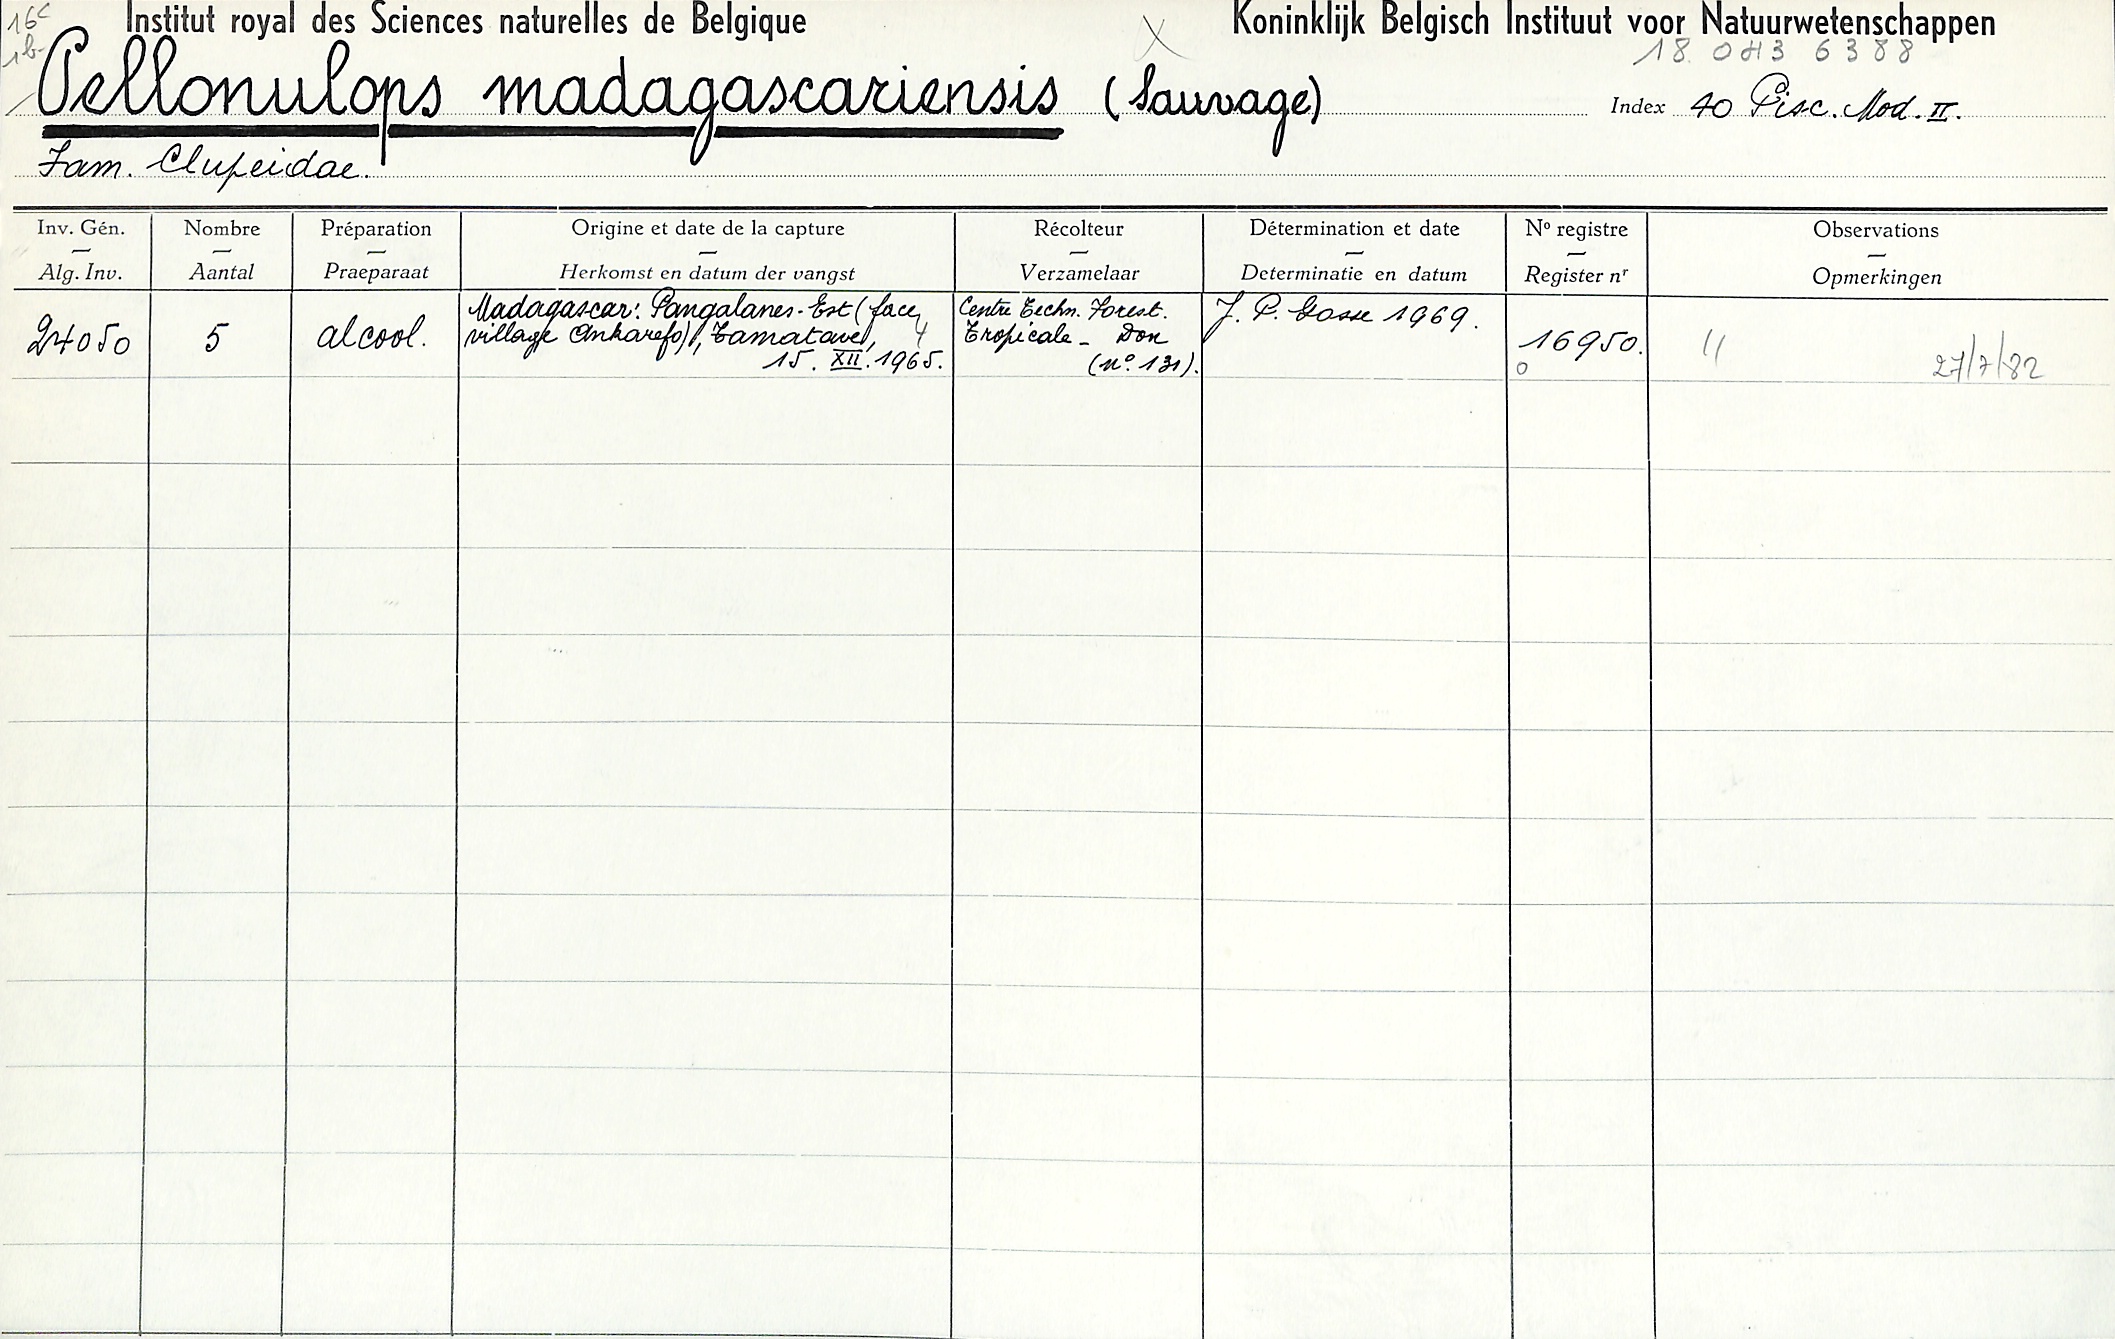 16c
1b
Institut royal des Sciences naturelles de Belgique
Koninklijk Belgisch Instituut voor Natuurwetenschappen
Pellonulops madagascariensis (Sauvage)
Index 40 Pisc. Mod. II.
Fam. Clupeidae.
Inv. Gén.
Alg. Inv.
Nombre
Aantal
Préparation
Praeparaat
Origine et date de la capture
Herkomst en datum der vangst
Récolteur
Verzamelaar
Détermination et date
Determinatie en datum
Nº registre
Register nr
Observations
Opmerkingen
24050
5
alcool.
Madagascar: Pangalanes-Est (face
village Ankarefo), Tamatave,
15. XII. 1965.
Centre Techn. Forest.
Tropicale - Don
(nº 131).
J. P. Gosse 1969.
16950.
0
27/7/82